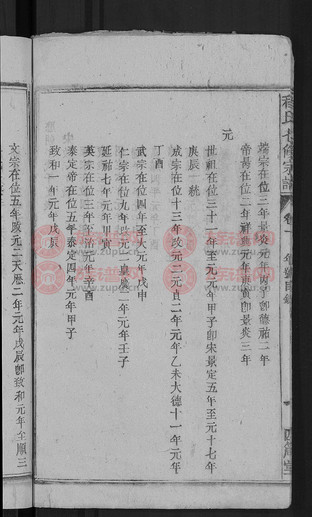 端宗在位三年景炎元年丙子即德祐二年
帝昺在位二年祥興元年戊寅即景炎三年
元
世祖在位三十一年至元元年甲子卽宋景定五年至元十七年
庚辰一統
成宗在位十三年改元二元貞二年元年乙未大德十一年元年
丁酉
武宗在位四年至大元年戊申
仁宗在位九年改元二皇慶二年元年壬子
延祐七年元年甲寅
英宗在位三年至治元年辛酉
泰定帝在位五年泰定四年元年甲子
致和一年元年戊辰
文宗在位五年改元二天厯二年元年戊辰卽致和元年至順三